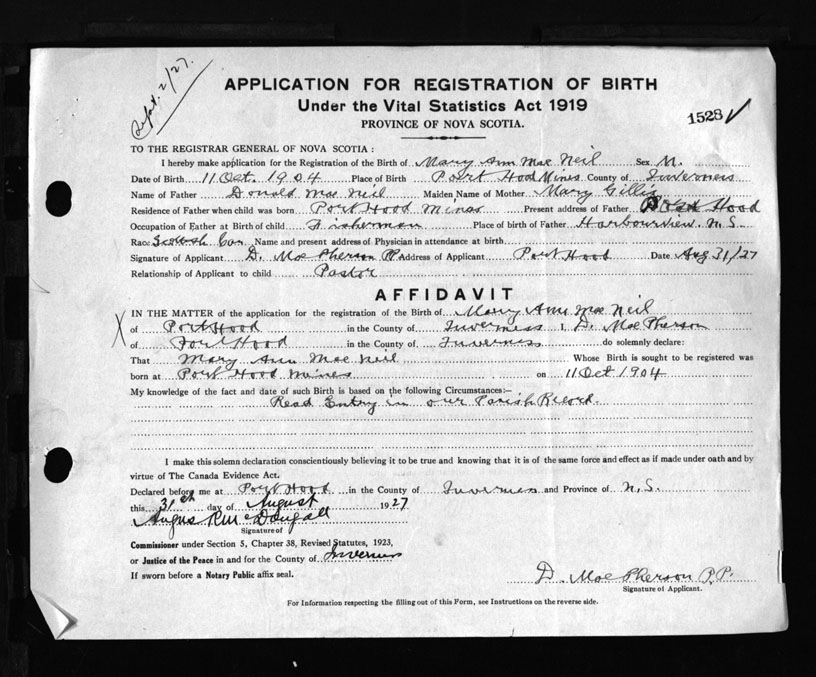 Sept. 2/27.
APPLICATION FOR REGISTRATION OF BIRTH
Under the Vital Statistics Act 1919
PROVINCE OF NOVA SCOTIA.
1528
TO THE REGISTRAR GENERAL OF NOVA SCOTIA :
I hereby make application for the Registration of the Birth of Mary Ann Mac Neil Sex
Date of Birth 11 Oct. 1904 Place of Birth Port Hood Mines County of Inverness
Name of Father Donald Mac Neil Maiden Name of Mother Mary Gillis
Residence of Father when child was born Port Hood Mines Present address of Father Port Hood
Occupation of Father at Birth of child Fisherman Place of birth of Father Harbourview N.S.
Race Scotsh Can Name and present address of Physician in attendance at birth
Signature of Applicant D. Mac Pherson PP Address of Applicant Port Hood Date Aug 31/27
Relationship of Applicant to child Pastor
AFFIDAVIT
IN THE MATTER of the application for the registration of the Birth of Mary Ann Mac Neil
X of Port Hood in the County of Inverness I, D. Mac Pherson
of Port Hood in the County of Inverness do solemnly declare:
That Mary Ann Mac Neil Whose Birth is sought to be registered was
born at Port Hood Mines on 11 Oct 1904
My knowledge of the fact and date of such Birth is based on the following Circumstances:—
Read Entry in our Parish Record.
I make this solemn declaration conscientiously believing it to be true and knowing that it is of the same force and effect as if made under oath and by
virtue of The Canada Evidence Act.
Declared before me at Port Hood in the County of Inverness and Province of N.S.
this 31st day of August 1927
Angus R McDougall
Signature of
Commissioner under Section 5, Chapter 38, Revised Statutes, 1923,
or Justice of the Peace in and for the County of Inverness
If sworn before a Notary Public affix seal.
D. Mac Pherson P.P.
Signature of Applicant.
For Information respecting the filling out of this Form, see Instructions on the reverse side.